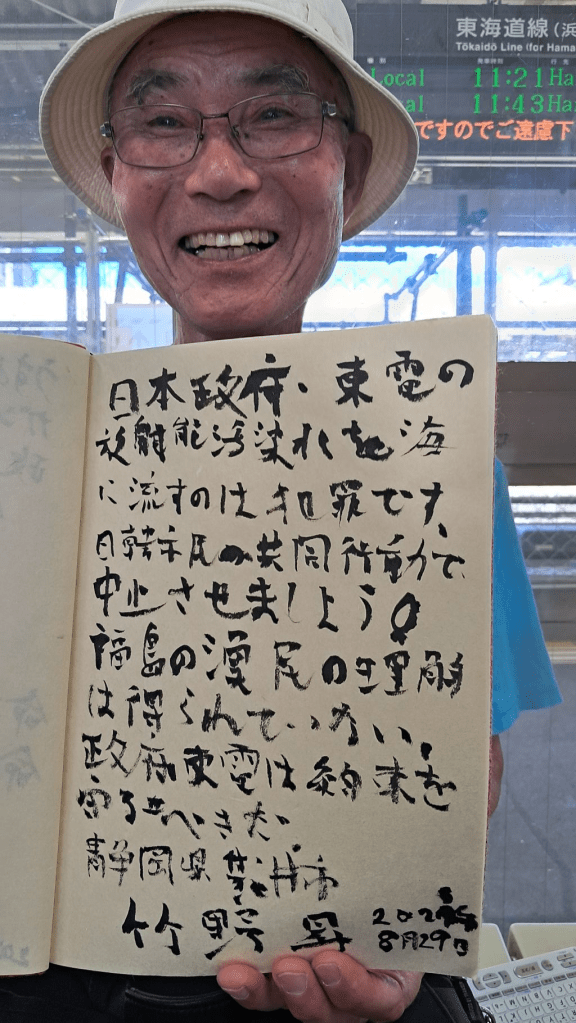 東海道線(浜
Tōkaidō Line (for Hama
種別 発車時刻 行先
Local 11:21 Ha
al 11:43 Ha
ですのでご遠慮下
日本政府、東電の
放射能汚染水を海
に流すのは犯罪です、
日韓市民の共同行動で
中止させましょう。
福島の漁民の理解
は得られていない、
政府東電は約束を
守るべきだ、
静岡県袋井市
竹野昇
8月29日